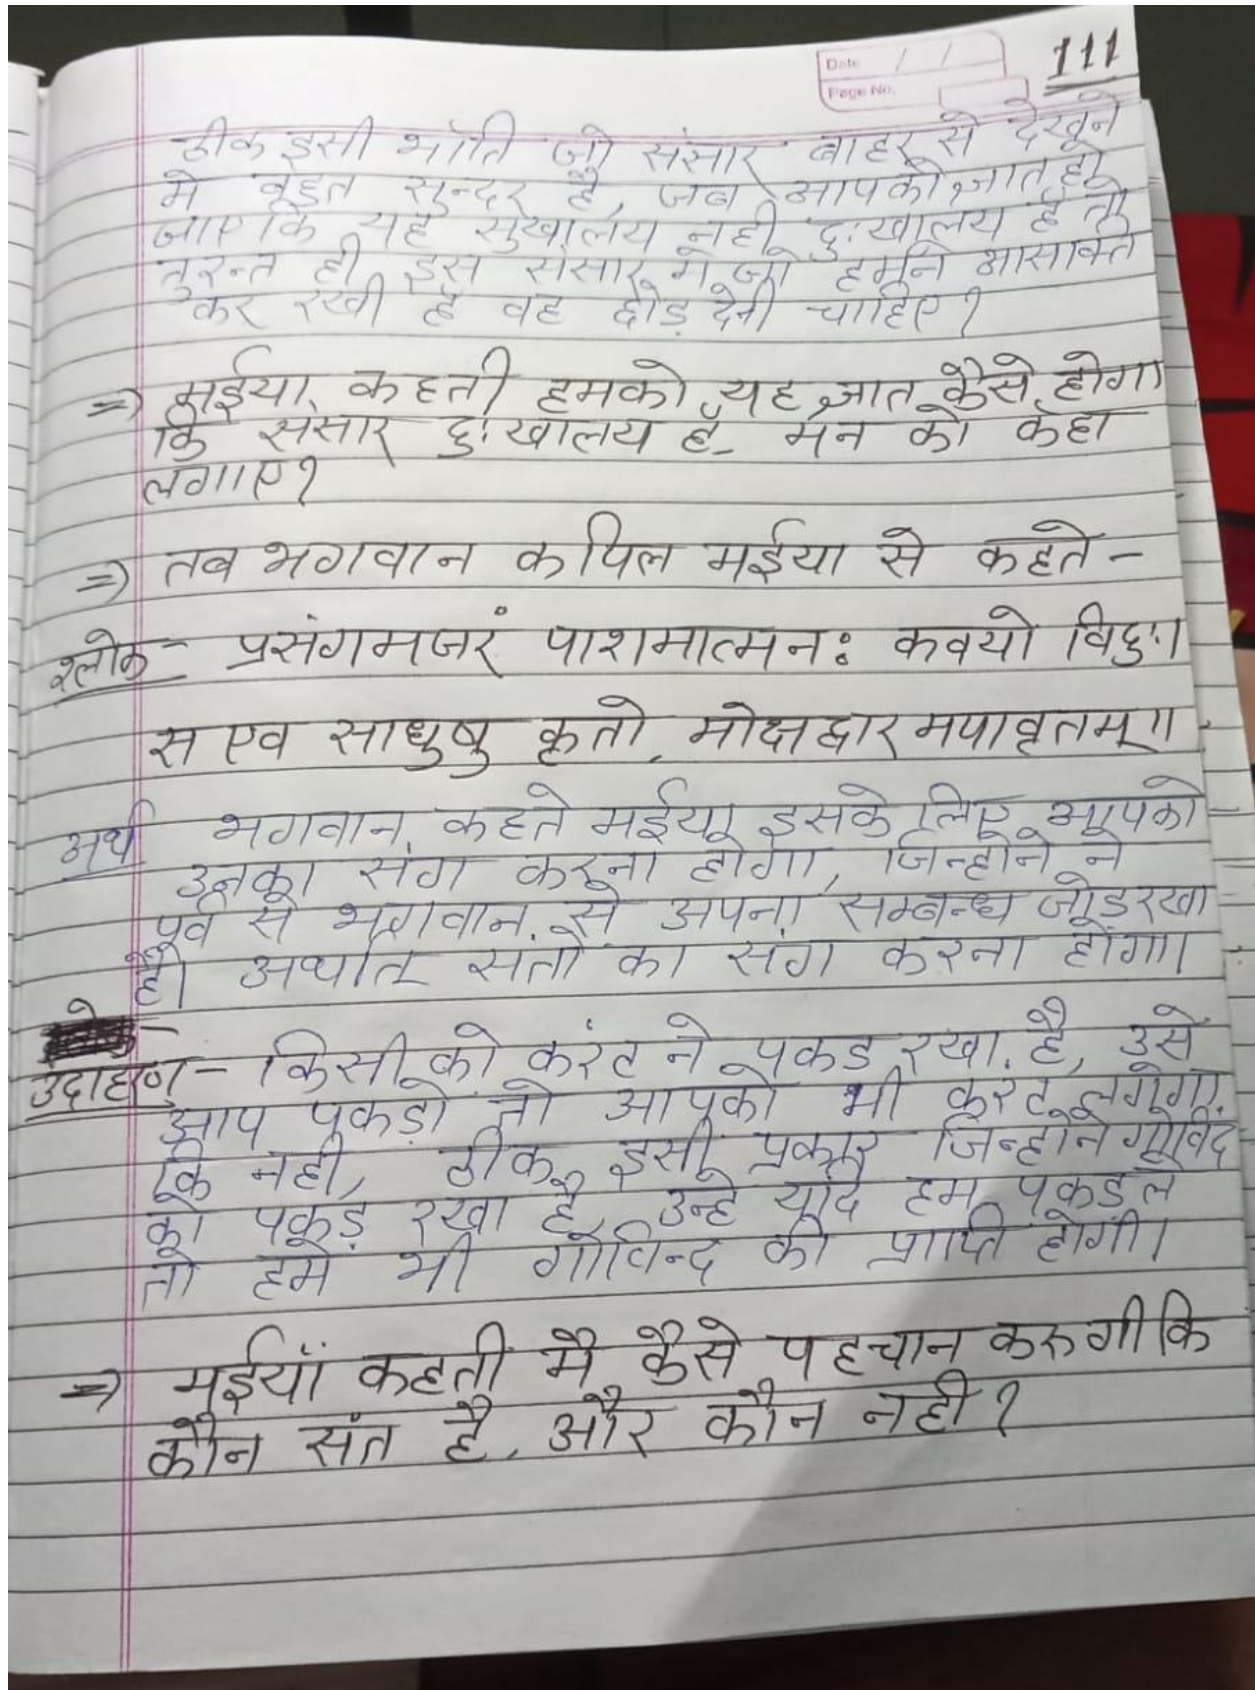 Date / /
Page No.
111
ठीक इसी भाँति जो संसार बाहर से देखने
मे बहुत सुन्दर है, जब आपको ज्ञात हो
जाए कि यह सुखालय नही दुःखालय है तो
तुरन्त ही इस संसार मे जो हमने आसक्ति
कर रखी है वह छोड़ देनी चाहिए?
=> मईया कहती हमको यह ज्ञात कैसे होगा
कि संसार दुःखालय है मन को कहा
लगाए?
=> तब भगवान कपिल मईया से कहते -
श्लोक - प्रसंगमजरं पाशमात्मनः कवयो विदुः।
स एव साधुषु कृतो मोक्षद्वारमपावृतम्॥
अर्थ भगवान कहते मईया इसके लिए आपको
उनका संग करना होगा, जिन्होने ने
पूर्व से भगवान से अपना सम्बन्ध जोड रखा
है। अर्थात संतो का संग करना होगा।
उदाहण - किसी को करंट ने पकड रखा है, उसे
आप पकड़ो तो आपको भी करंट लगेगा
कि नही, ठीक इसी प्रकार जिन्होने गोविंद
को पकड़ रखा है, उन्हे यदि हम पकडले
तो हमे भी गोविन्द की प्राप्ति होगी।
=> मईयाँ कहती मै कैसे पहचान करुगी कि
कौन संत है, और कौन नही?